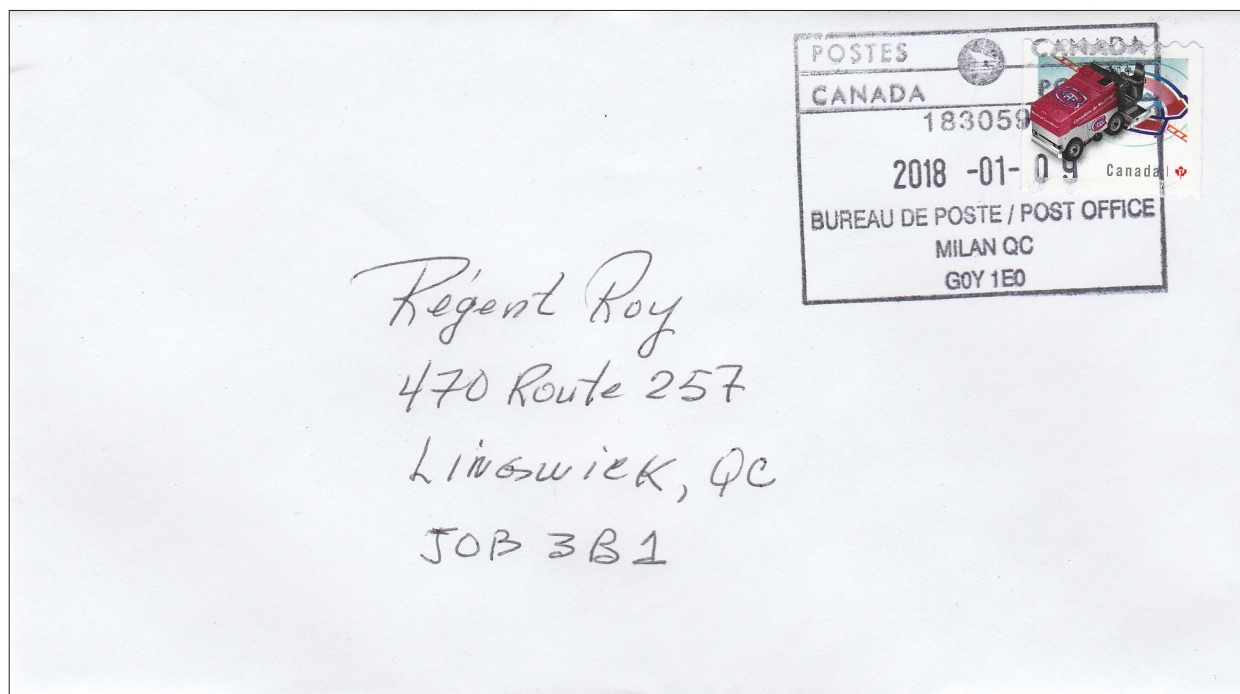 POSTES CANADA
CANADA PO
183059
2018 -01- 09
BUREAU DE POSTE / POST OFFICE
MILAN QC
G0Y 1E0
Canada P
Régent Roy
470 Route 257
Lingwick, QC
J0B 3B1